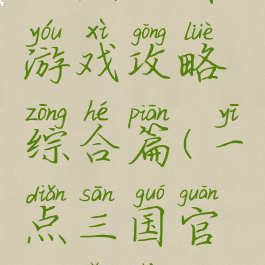 yóu xì gōng lüè
游戏攻略
zōng hé piān yī
综合篇(一
diǎn sān guó guān
点三国官